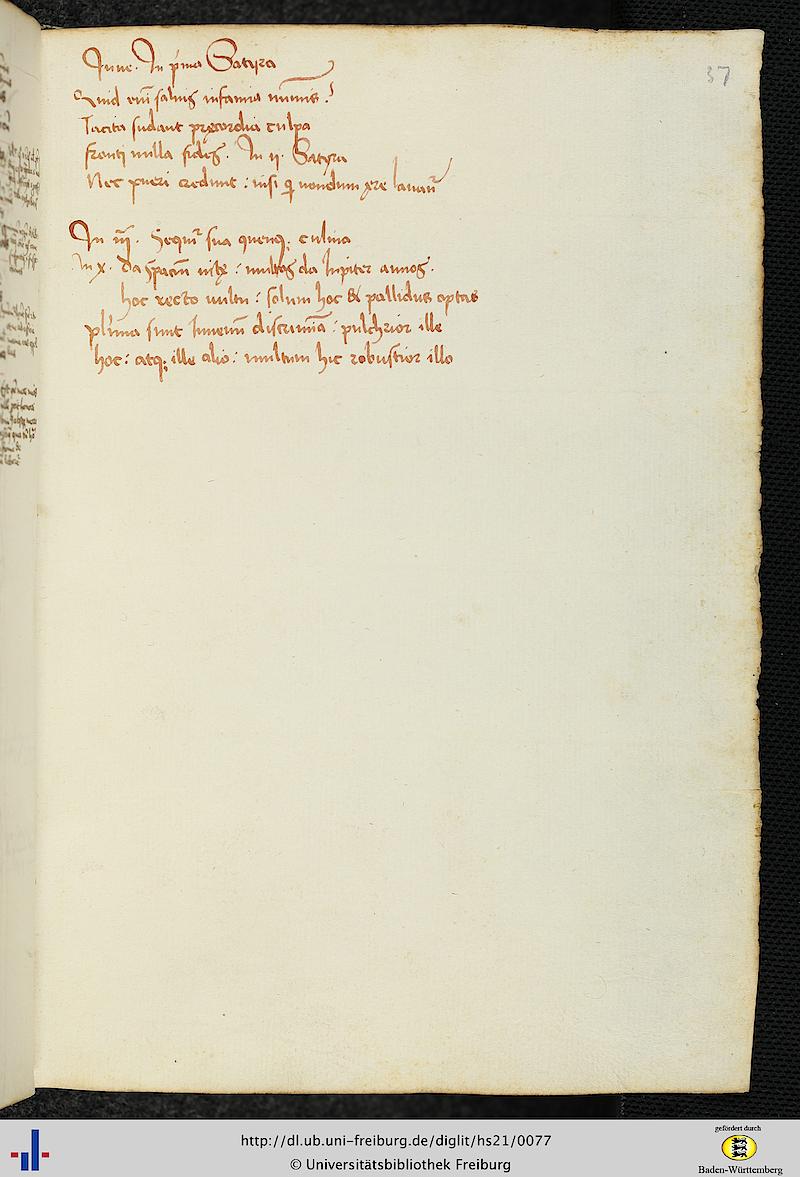 Iuue. In pͥma Satyra
Quid eni͂ saluis infamia nu͂mis?
Tacita sudant pręcordia culpa
fronti nulla fides. In ij. Satyra
Nec pueri credunt : nisi q̇ nondum ęre lauant᷑
In iij. Sequit᷑ sua quenq; culina
In x. da spaciu͂ uitę : multos da Iupiter annos.
hoc recto uultu : solum hoc & pallidus optas
pl'ima sunt Iuuenu͂ discrimi͂a : pulchrior ille
hoc : atq; ille alio : multum hic robustior illo
37
http://dl.ub.uni-freiburg.de/diglit/hs21/0077
© Universitätsbibliothek Freiburg
gefördert durch
Baden-Württemberg